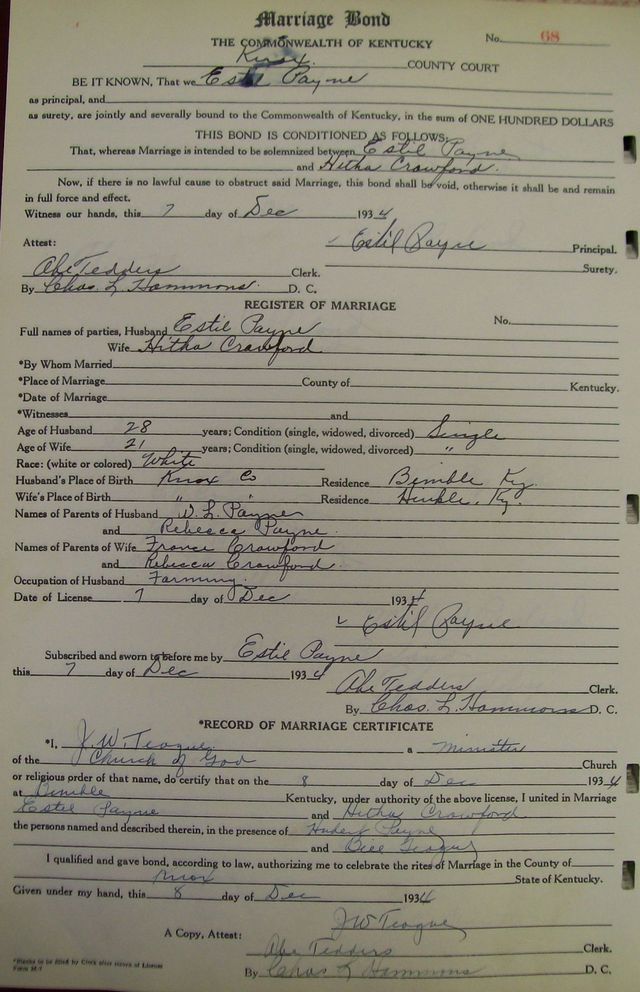 Marriage Bond
THE COMMONWEALTH OF KENTUCKY No. 68
Knox COUNTY COURT
BE IT KNOWN, That we Estil Payne
as principal, and
as surety, are jointly and severally bound to the Commonwealth of Kentucky, in the sum of ONE HUNDRED DOLLARS
THIS BOND IS CONDITIONED AS FOLLOWS:
That, whereas Marriage is intended to be solemnized between Estil Payne
and Hitha Crawford.
Now, if there is no lawful cause to obstruct said Marriage, this bond shall be void, otherwise it shall be and remain
in full force and effect.
Witness our hands, this 7 day of Dec 1934
Attest: Estil Payne Principal.
Abe Tedders Clerk. Surety.
By Chas. L. Hammons. D. C.
REGISTER OF MARRIAGE
No.
Full names of parties, Husband Estil Payne
Wife Hitha Crawford
*By Whom Married
*Place of Marriage County of Kentucky.
*Date of Marriage
*Witnesses and
Age of Husband 28 years; Condition (single, widowed, divorced) Single
Age of Wife 21 years; Condition (single, widowed, divorced) "
Race: (white or colored) White
Husband's Place of Birth Knox Co Residence Bimble Ky.
Wife's Place of Birth " " Residence Hinkle, Ky.
Names of Parents of Husband L. Payne
and Rebecca Payne.
Names of Parents of Wife France Crawford
and Rebecca Crawford.
Occupation of Husband Farming.
Date of License 7 day of Dec 1934
Estil Payne
Subscribed and sworn to before me by Estil Payne
this 7 day of Dec 1934
Abe Tedders Clerk.
By Chas. L. Hammons D. C.
*RECORD OF MARRIAGE CERTIFICATE
*I, J. W. Teague a Minister
of the Church of God Church
or religious order of that name, do certify that on the 8 day of Dec 1934
at Bimble Kentucky, under authority of the above license, I united in Marriage
Estil Payne and Hitha Crawford
the persons named and described therein, in the presence of Hubert Payne
and Teague
I qualified and gave bond, according to law, authorizing me to celebrate the rites of Marriage in the County of
Knox State of Kentucky.
Given under my hand, this 8 day of Dec 1934
J W Teague
A Copy, Attest: Abe Tedders Clerk.
By Chas L Hammons D. C.
*Blanks to be filled by Clerk after return of License
Form M-7